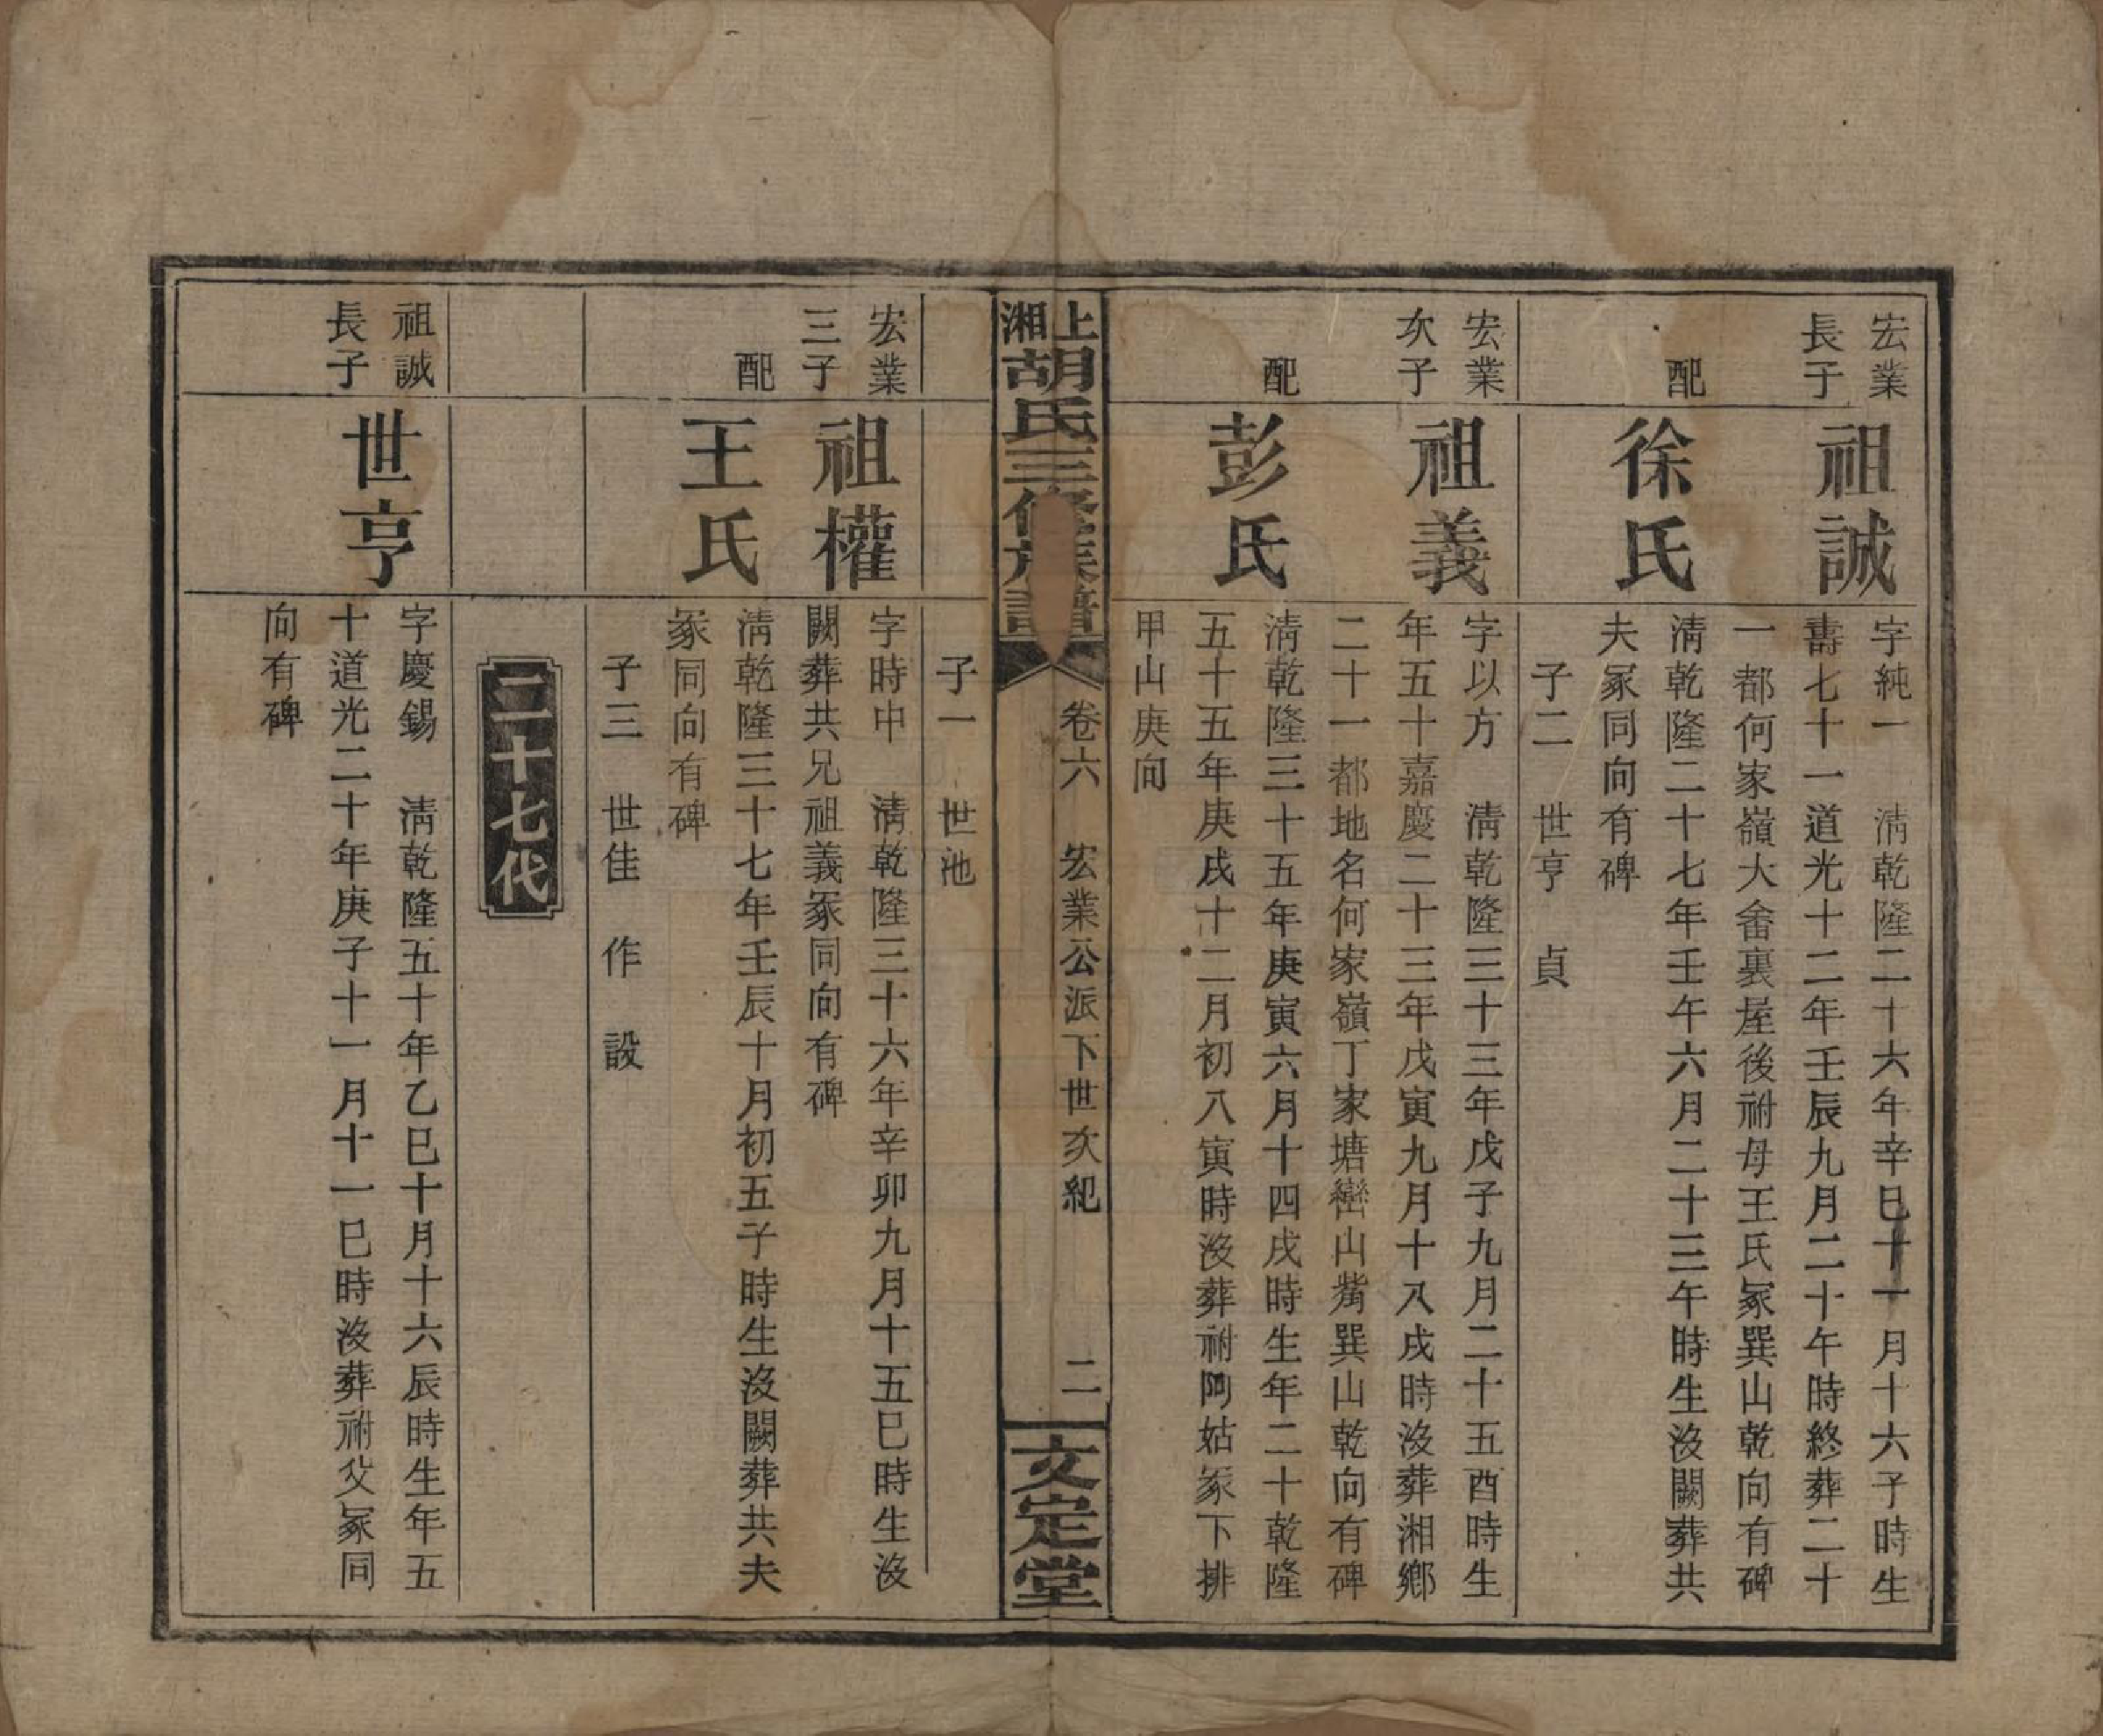 宏業
長子
祖誠
字純一　清乾隆二十六年辛巳十一月十六子時生
壽七十一道光十二年壬辰九月二十午時終葬二十
一都何家嶺大畬裏屋後祔母王氏冢巽山乾向有碑
配
徐氏
清乾隆二十七年壬午六月二十三午時生沒闕葬共
夫冢同向有碑
子二　世亨　貞
宏業
次子
祖義
字以方　清乾隆三十三年戊子九月二十五酉時生
年五十嘉慶二十三年戊寅九月十八戌時沒葬湘鄉
二十一都地名何家嶺丁家塘巒山觜巽山乾向有碑
配
彭氏
清乾隆三十五年庚寅六月十四戌時生年二十乾隆
五十五年庚戌十二月初八寅時沒葬祔阿姑冢下排
甲山庚向
上湘
胡氏三修族譜
卷六　宏業公派下世次紀　二
文定堂
子一　世池
宏業
三子
祖權
字時中　清乾隆三十六年辛卯九月十五巳時生沒
闕葬共兄祖義冢同向有碑
配
王氏
清乾隆三十七年壬辰十月初五子時生沒闕葬共夫
冢同向有碑
子三　世佳　作　設
二十七代
祖誠
長子
世亨
字慶錫　清乾隆五十年乙巳十月十六辰時生年五
十道光二十年庚子十一月十一巳時沒葬祔父冢同
向有碑